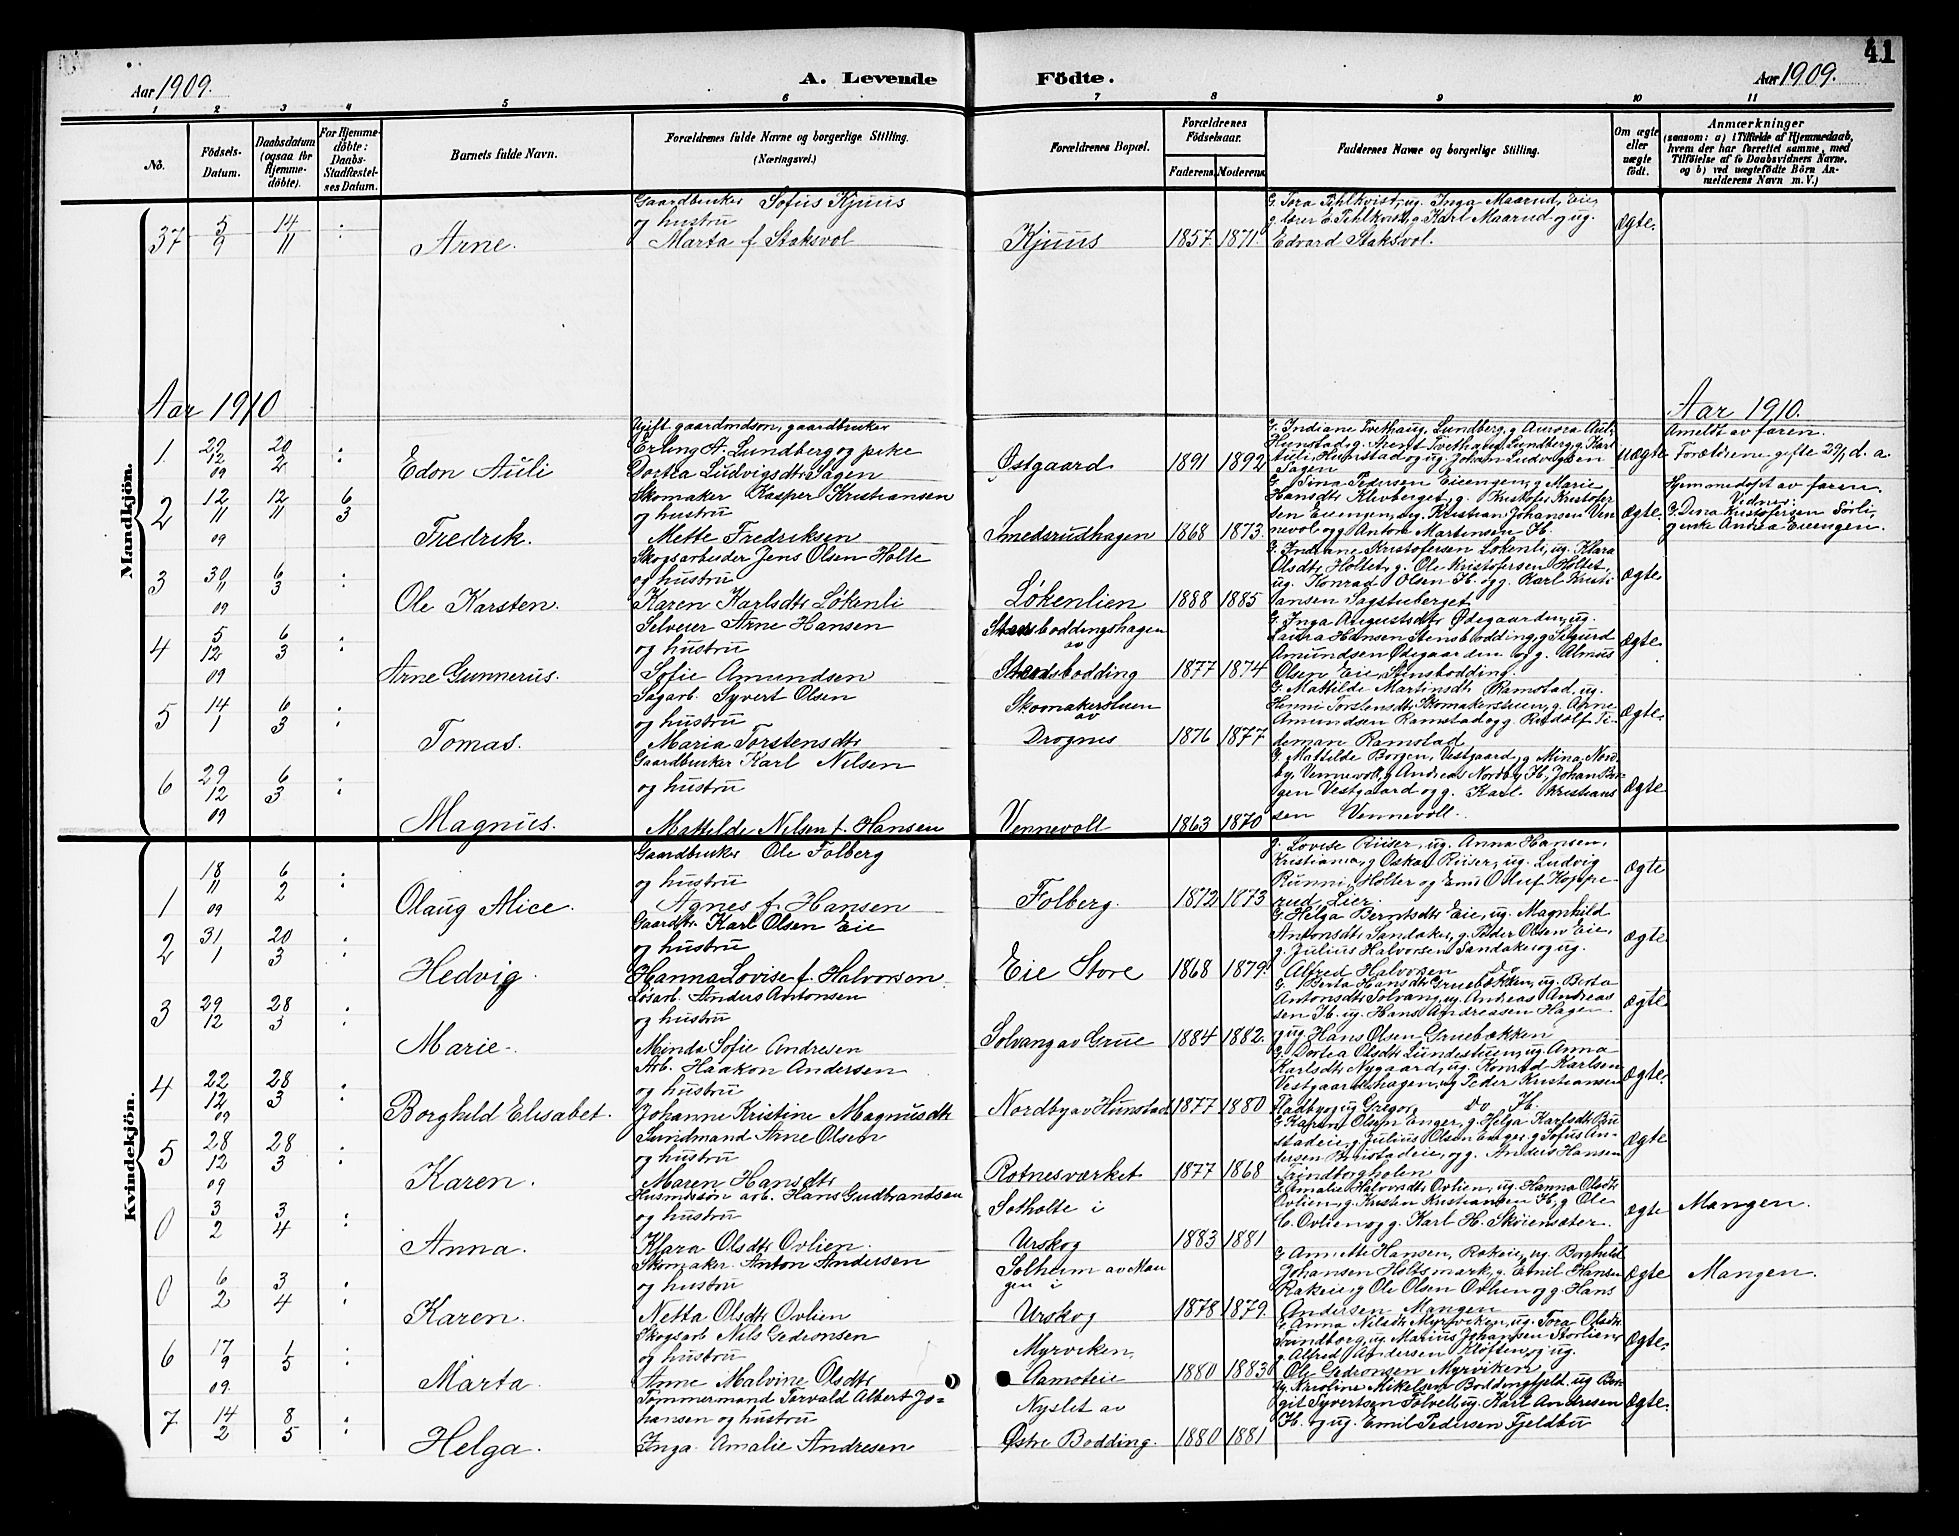 41
Aar 1909.
A. Levende
Födte.
Aar 1909.
1 2 3 4 5 6 7 8 9 10 11
No.
Födsels-
Datum.
Daabsdatum
(ogsaa for
Hjemme-
döbte).
For Hjemme-
döbte:
Daabs-
Stadfæstel-
ses Datum.
Barnets fulde Navn.
Forældrenes fulde Navne og borgerlige Stilling.
(Næringsvei.)
Forældrenes Bopæl.
Forældrenes
Födselsaar.
Faderens. Moderens.
Faddernes Navne og borgerlige Stilling.
Om ægte
eller
uægte
født.
Anmærkninger
(saasom: a) i Tilfælde af Hjemmedaab,
hvem der har forrettet samme, med
Tilföielse af to Daabsvidners Navne.
og b) ved uægtefödte Börn An-
melderens Navn m. V.)
Mandkjön.
37
5/9
14/11
Arne.
Gaardbruker Sofus Kjuus
og hustru
Marta f Staksvol
Kjuus
1857 1871.
Edvard Staksvol.
Ægte.
Aar 1910
Aar 1910.
1.
29/12 09
20/2
Edon Auli
Ugift gaardmdsøn, gaardbruker
Erling A. Lundberg og pike
Dortea Ludvigsdtr Sagen
Østgaard
1891 1892
G. Indiane Tvethaug, Lundberg, g Aurora Auli
Hunstad, g. Arent Tvethaug Lundberg, g. Karl
Auli, Hunstad og ug. Johan Ludvigsen
Sagen
uægte
Anmeldt av faren.
Forældrene gifte 29/1 d. a.
2
12/11 09
12/11
6/3
Fredrik.
Skomaker Kasper Kristiansen
og hustru
Mette Fredriksen
Smedsrudhagen
1868 1873.
G. Tina Pedersen Eiengen, g Marie
Hansdtr Klevberget, g. Kristofer Kristofer
sen Eiengen, ug. Kristian Johansen Ven
nevol og g Anton Martinsen H.
Ægte.
Hjemmedøpt av faren.
Vidner:
G. Dina Kristofersen Sørli,
g enke Andrea Eiengen.
3
30/11 09
6/3
Ole Karsten.
Skogsarbeider Jens Olsen Holte
og hustru
Karen Karlsdtr Løkenli
Løkenlien
1888 1885
G. Indiane Kristofersen Løkenli, ug. Klara
Olsdtr Holtet, g. Ole Kristofersen Holtet,
ug. Konrad Olsen H. og g. Karl Kristi
ansen Sagstuberget
Ægte
4
5/12 09
6/3
Arne Gunnerus.
Selveier Arne Hansen
og hustru
Sofie Amundsen
Stensboddingshagen
av
Stensbodding
1877 1874
G. Inga Augustsdtr Ødegaarden, ug.
Laura Hansen Stensbodding, g Sigurd
Amundsen Ødegaarden og g. Almus
Olsen Eie, Stensbodding.
Ægte
5
14/1
6/3
Tomas.
Sagarb. Syvert Olsen
og hustru
Maria Torstensdtr
Skomakerstuen
av
Drognes
1876 1877
G. Mathilde Martinsdtr Ramstad, ug.
Hanni Torstensdtr Skomakerstuen, g. Arne
Amundsen Ramstad og g. Rudolf Ti-
deman Ramstad
Ægte.
6
29/12 09
6/3
Magnus.
Gaardbruker Karl Nilsen
og hustru
Mattelde Nilsen f. Hansen
Vennevoll
1863 1870
G. Mattelde Borgen, Vestgaard, g Mina Nord
by, Vennevoll, g Andreas Nordby H. Johan Bor
gen Vestgaard og g. Karl Kristians
sen Vennevoll.
Ægte
Kvindekjön.
1
18/11 09
6/2
Olaug Alice.
Gaardbruker Ole Folberg
og hustru
Agnes f. Hansen
Folberg.
1872 1873
g. Lovise Riiser, ug. Anna Hansen,
Kristiania, g Oskar Riiser, ug. Ludvig
Runni Holter og Emil Oluf Koppe-
rud, Lier.
Ægte
2
31/1
20/3
Hedvig.
Gaardbr. Karl Olsen Eie
og hustru
Hanna Lovise f. Halvorsen
Eie Store
1868 1879.
G. Helga Berntsdtr Eie, ug. Magnhild
Antonsdtr Sandaker, g. Peder Olsen Eie,
g. Julius Halvorsen Sandaker og ug.
Alfred Halvorsen do
Ægte
3
29/12
28/3
Marie.
Løsarb. Anders Antonsen
og hustru
Minda Sofie Andresen
Solvang av Grue
1884 1882.
G Berta Hansdtr Gruebækken, ug. Berta
Antonsdtr Solvang, ug. Andreas Andreas
sen H. ug. Hans Andreasen Hagen
og ug. Hans Olsen Gruebækken
Ægte
4
22/12 09
28/3
Borghild Elisabet.
Arb. Haakon Andersen
og hustru
Johanne Kristine Magnusdtr
Nordby av Hunstad
1877 1880
G. Dortea Olsdtr Lundestuen, ug. Anna
Karlsdtr Nygaard, ug. Konrad Karlsen
Vestgaardshagen, ug Peder Kristiansen
Radbyog ug Gregor do H.
Ægte.
5
28/12 09
28/3
Karen.
Sundmand Arne Olsen
og hustru
Maren Hansdtr
Rotnesværket
1877 1868
G Karen Olsen Enger, g. Helga Karlsdtr Bru
stadeie, g. Julius Olsen Enger, g Sofus An-
dersen Brustadeie, og g. Anders Hansen
Trindborgholen
Ægte
0
3/2
3/4
Anna.
Husmdsøn arb. Hans Gudbrandsen
og hustru
Klara Olsdtr Ovlien.
Sotholte i
Urskog
1883 1881
G. Amalie Halvorsdtr Ovlien, ug. Hanna Olsdtr
Ovlien, g. Kristen Kristiansen H, g Ole
C. Ovlien og g. Karl H. Skøiensæter.
Ægte
Mangen.
0
6/2
3/4
Karen.
Skomaker. Anton Andersen
og hustru
Netta Olsdtr Ovlien
Solheim av Man
gen i
Urskog
1878 1879.
G Annette Hansen, Rakeie, ug. Borghild
Johansen Holtsmark, g. Emil Hansen
Rakeie, g Ole Olsen Ovlien og g. Hans
Andersen Mangen
Ægte
Mangen.
6
17/9 09.
1/5
Marta.
Skogsarb Nils Gedeonsen
og hustru
Anne Malvine Olsdtr
Myrviken,
Aamoteie
1880 1883
G. Anna Nilsdtr Myrviken, ug. Tora Olsdtr
Trindborg, ug. Marius Johansen Storlien,
g. Alfred Andersen Kløften, og ug.
Ole Gedeonsen Myrviken
Ægte.
7
14/2
8/5
Helga.
Tømmermand Torvald Albert Jo=
hansen og hustru
Inga Amalie Andresen
Nyslet av
Østre Bodding.
1880 1881
Ug. Karoline Mikelsen Boddingfjeld, ug Bor
git Syvertsen Tolvell, ug. Karl Andresen
H. og ug. Emil Pedersen Fjeldbu
Ægte.